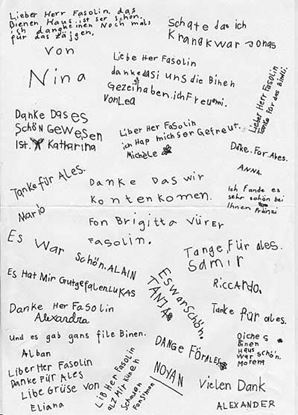 Lieber Herr Fasolin, das
Dienen Hauf ist ser schön.
ich danke inen Noch mals
für das zäigen.
von
Nina
Schate das ich
Krangk war Jonas
Liebe Her Fasolin
danke dasi uns die Binen
Gezei haben. ich Freu mi.
Von Lea
Lieber Her Fasolin
Danke Das es
Schön Gewesen
Ist. Katharina
Liber Her Fasolin
ich Hap mich ser Getreut.
Michèle
Danke. För Ales.
ANNA
Tanke für Ales.
Mario
Danke Das wir
Kontenkomen.
Fon Brigitta Vürer
Fasolin.
Ich Fande es
sehr schön bei
Ihnen
Es War Schön. ALAIN
Tange Für ales.
Samir
Es Hat Mir Gutgefalen LUKAS
Es war schön.
TANJA
Riccardo.
Danke Her Fasolin
Alexandra
Tanke Für ales.
Und es gab gans file Binen.
Alban
DANGE FÖR ALES
NOYAN
Diches
Binen
Haus
war schön.
Liber Her Fasolin
Danke Für Ales
Libe Grüse von
Eliana
Lib Her Fasolin
Vielen Dank
ALEXANDER